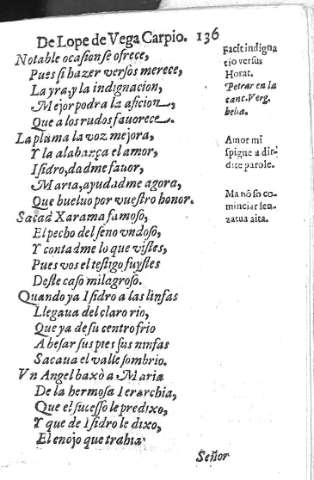 De Lope de Vega Carpio. 136
Notable ocasion se ofrece,
Pues si hazer versos merece,
La yra, y la indignacion,
Mejor podra la aficion,
Que a los rudos fauorece.
La pluma la voz mejora,
Y la alabança el amor,
Isidro, dadme fauor,
Maria, ayudadme agora,
Que bueluo por vuestro honor.
Sacad Xarama famoso,
El pecho del seno vndoso,
Y contadme lo que vistes,
Pues vos el testigo fuystes
Deste caso milagroso.
Quando ya Isidro a las linfas
Llegaua del claro rio,
Que ya de su centro frio
A besar sus pies sus ninfas
Sacaua el valle sombrio.
Vn Angel baxò a Maria
De la hermosa Ierarchia,
Que el sucesso le predixo,
Y que de Isidro le dixo,
El enojo que trahia.
Señor
Facit indigna
tio versus
Horat.
Petrar en la
canc. Verg.
bella.
Amor mi
spigne a dir
di te parole.
Ma nò so co
minciar sen
za tua aita.